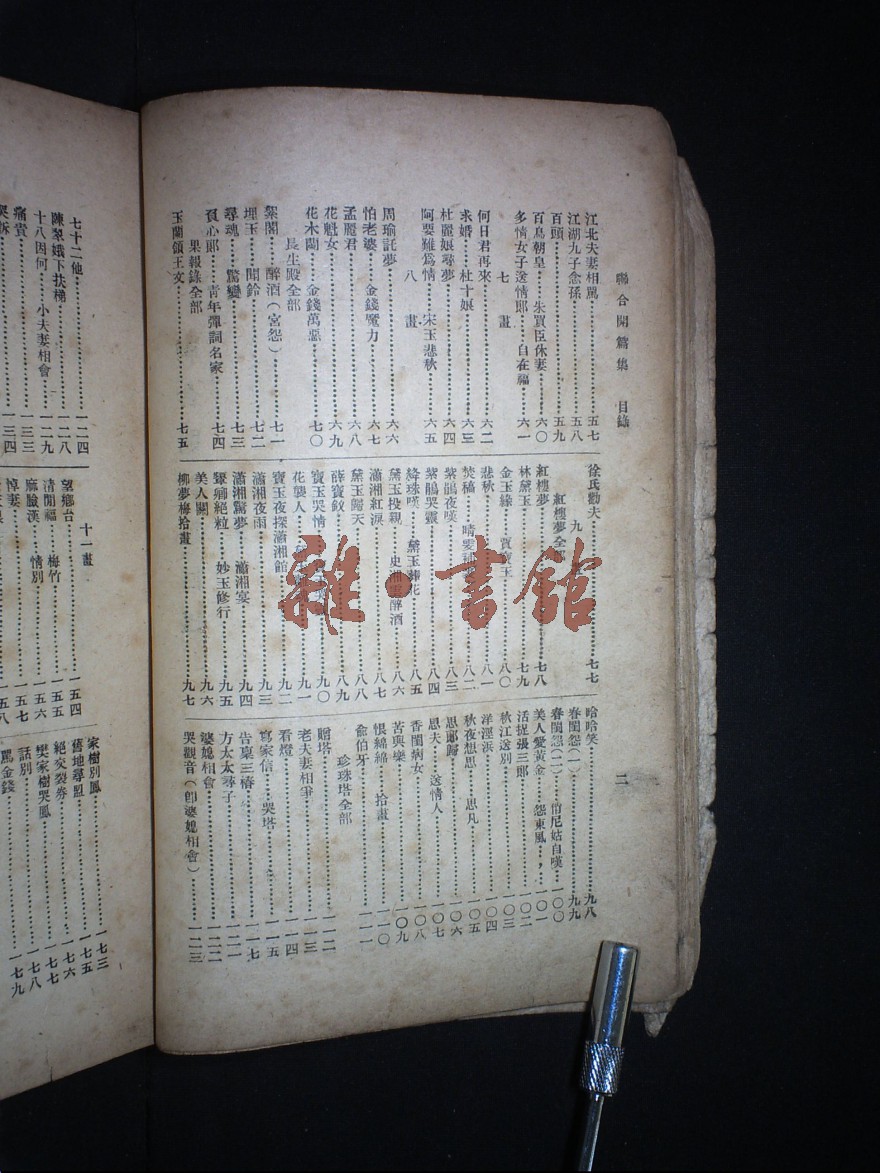 聯合開篇集　目錄
二
江北夫妻相罵……五七
江湖九子念孫……五八
百頭……五九
百鳥朝皇……朱買臣休妻……六〇
多情女子送情郎……自在福……六一
七　畫
何日君再來……六二
求婚……杜十娘……六三
杜麗娘尋夢……六四
阿要難爲情……宋玉悲秋……六五
八　畫
周瑜託夢……六六
怕老婆……金錢魔力……六七
孟麗君……六八
花魁女……六九
花木蘭……金錢萬惡……七〇
長生殿全部
絮閣……醉酒（宮怨）……七一
埋玉……聞鈴……七二
尋魂……驚變……七三
負心郎……青年彈詞名家……七四
果報錄全部
玉蘭領王文……七五
徐氏勸夫……七七
九
紅樓夢全部
紅樓夢……七八
林黛玉……七九
金玉緣……賈寶玉……八〇
悲秋……八一
焚稿……晴雯補……八二
紫鵑夜嘆……八三
紫鵑哭靈……八四
絳珠嘆……黛玉葬花……八五
黛玉投親……史湘雲醉酒……八六
瀟湘紅淚……八七
黛玉歸天……八八
薛寶釵……八九
寶玉哭情……九〇
寶玉夜探瀟湘館……九一
瀟湘夜雨……九三
瀟湘驚夢……瀟湘宴……九四
顰卿絕粒……妙玉修行……九五
美人關……九六
柳夢梅拾畫……九七
哈哈笑……九八
春閨怨（一）……九九
春閨怨（二）……尼姑自嘆……一〇〇
美人愛黃金……怨東風……一〇一
活捉張三郎……一〇二
秋江送別……一〇三
洋涇浜……一〇四
秋夜想思……思凡……一〇五
思郎歸……一〇六
思夫……送情人……一〇七
香閨病女……一〇八
苦與樂……一〇九
恨綿綿……拾畫……一一〇
俞伯牙……一一一
珍珠塔全部
贈塔……一一二
老夫妻相爭……一一三
花襲人
看燈……一一四
寫家信……哭塔……一一五
告稟三樁……一一七
方太太尋子……一二一
婆媳相會……一二二
哭觀音（卽婆媳相會）……一二三
七十二他……一二四
陳翠娥下扶梯……一二八
十八因何……小夫妻相會……一二九
痛責……一三三
一三四
十一畫
望鄉台……一五四
清閒福……梅竹……一五五
麻臉漢……情別……一五六
悼妻……一五七
五八
家樹別鳳……一七三
舊地尋盟……一七五
絕交裂券……一七六
樊家樹哭鳳……一七七
話別……一七八
罵金錢……一七九
雜·書館